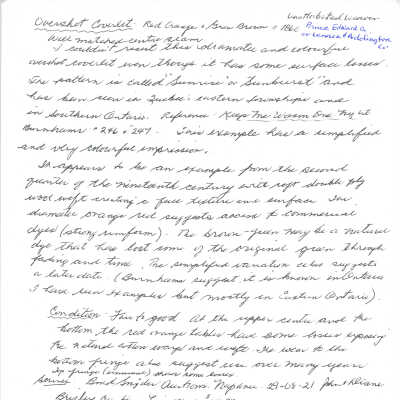 Overshot Coverlet Red Orange & Green Brown c 1860
Unattributed Weaver
Prince Edward Co
or Lennox & Addington Co
Well matched centre seam
I couldn't resist this dramatic and colourful
overshot coverlet even though it has some surface losses.
The pattern is called "Sunrise" or "Sunburst" and
has been seen in Quebec's eastern townships and
in Southern Ontario. Reference Keep Me Warm One Night
Burnhams # 246 & 247. This example has a simplified
and very colourful impression.
It appears to be an example from the second
quarter of the nineteenth century with soft double ply
wool weft creating a face texture one surface. The
dramatic orange red suggests access to commercial
dyes (strong uniform). The brown-green may be a natural
dye that has lost some of the original green through
fading and time. The simplified variation also suggests
a later date (Burnhams suggest it is known in Ontario
I have seen examples but mostly in Eastern Ontario).
Condition Fair to good At the upper centre and the
bottom, the red orange tables have some losses exposing
the natural cotton warp and weft. The wear to the
bottom fringe also suggest use over many years
Top fringe shows some losses
Source Bond Snyder Auctions Napanee 29-08-21 John & Diane